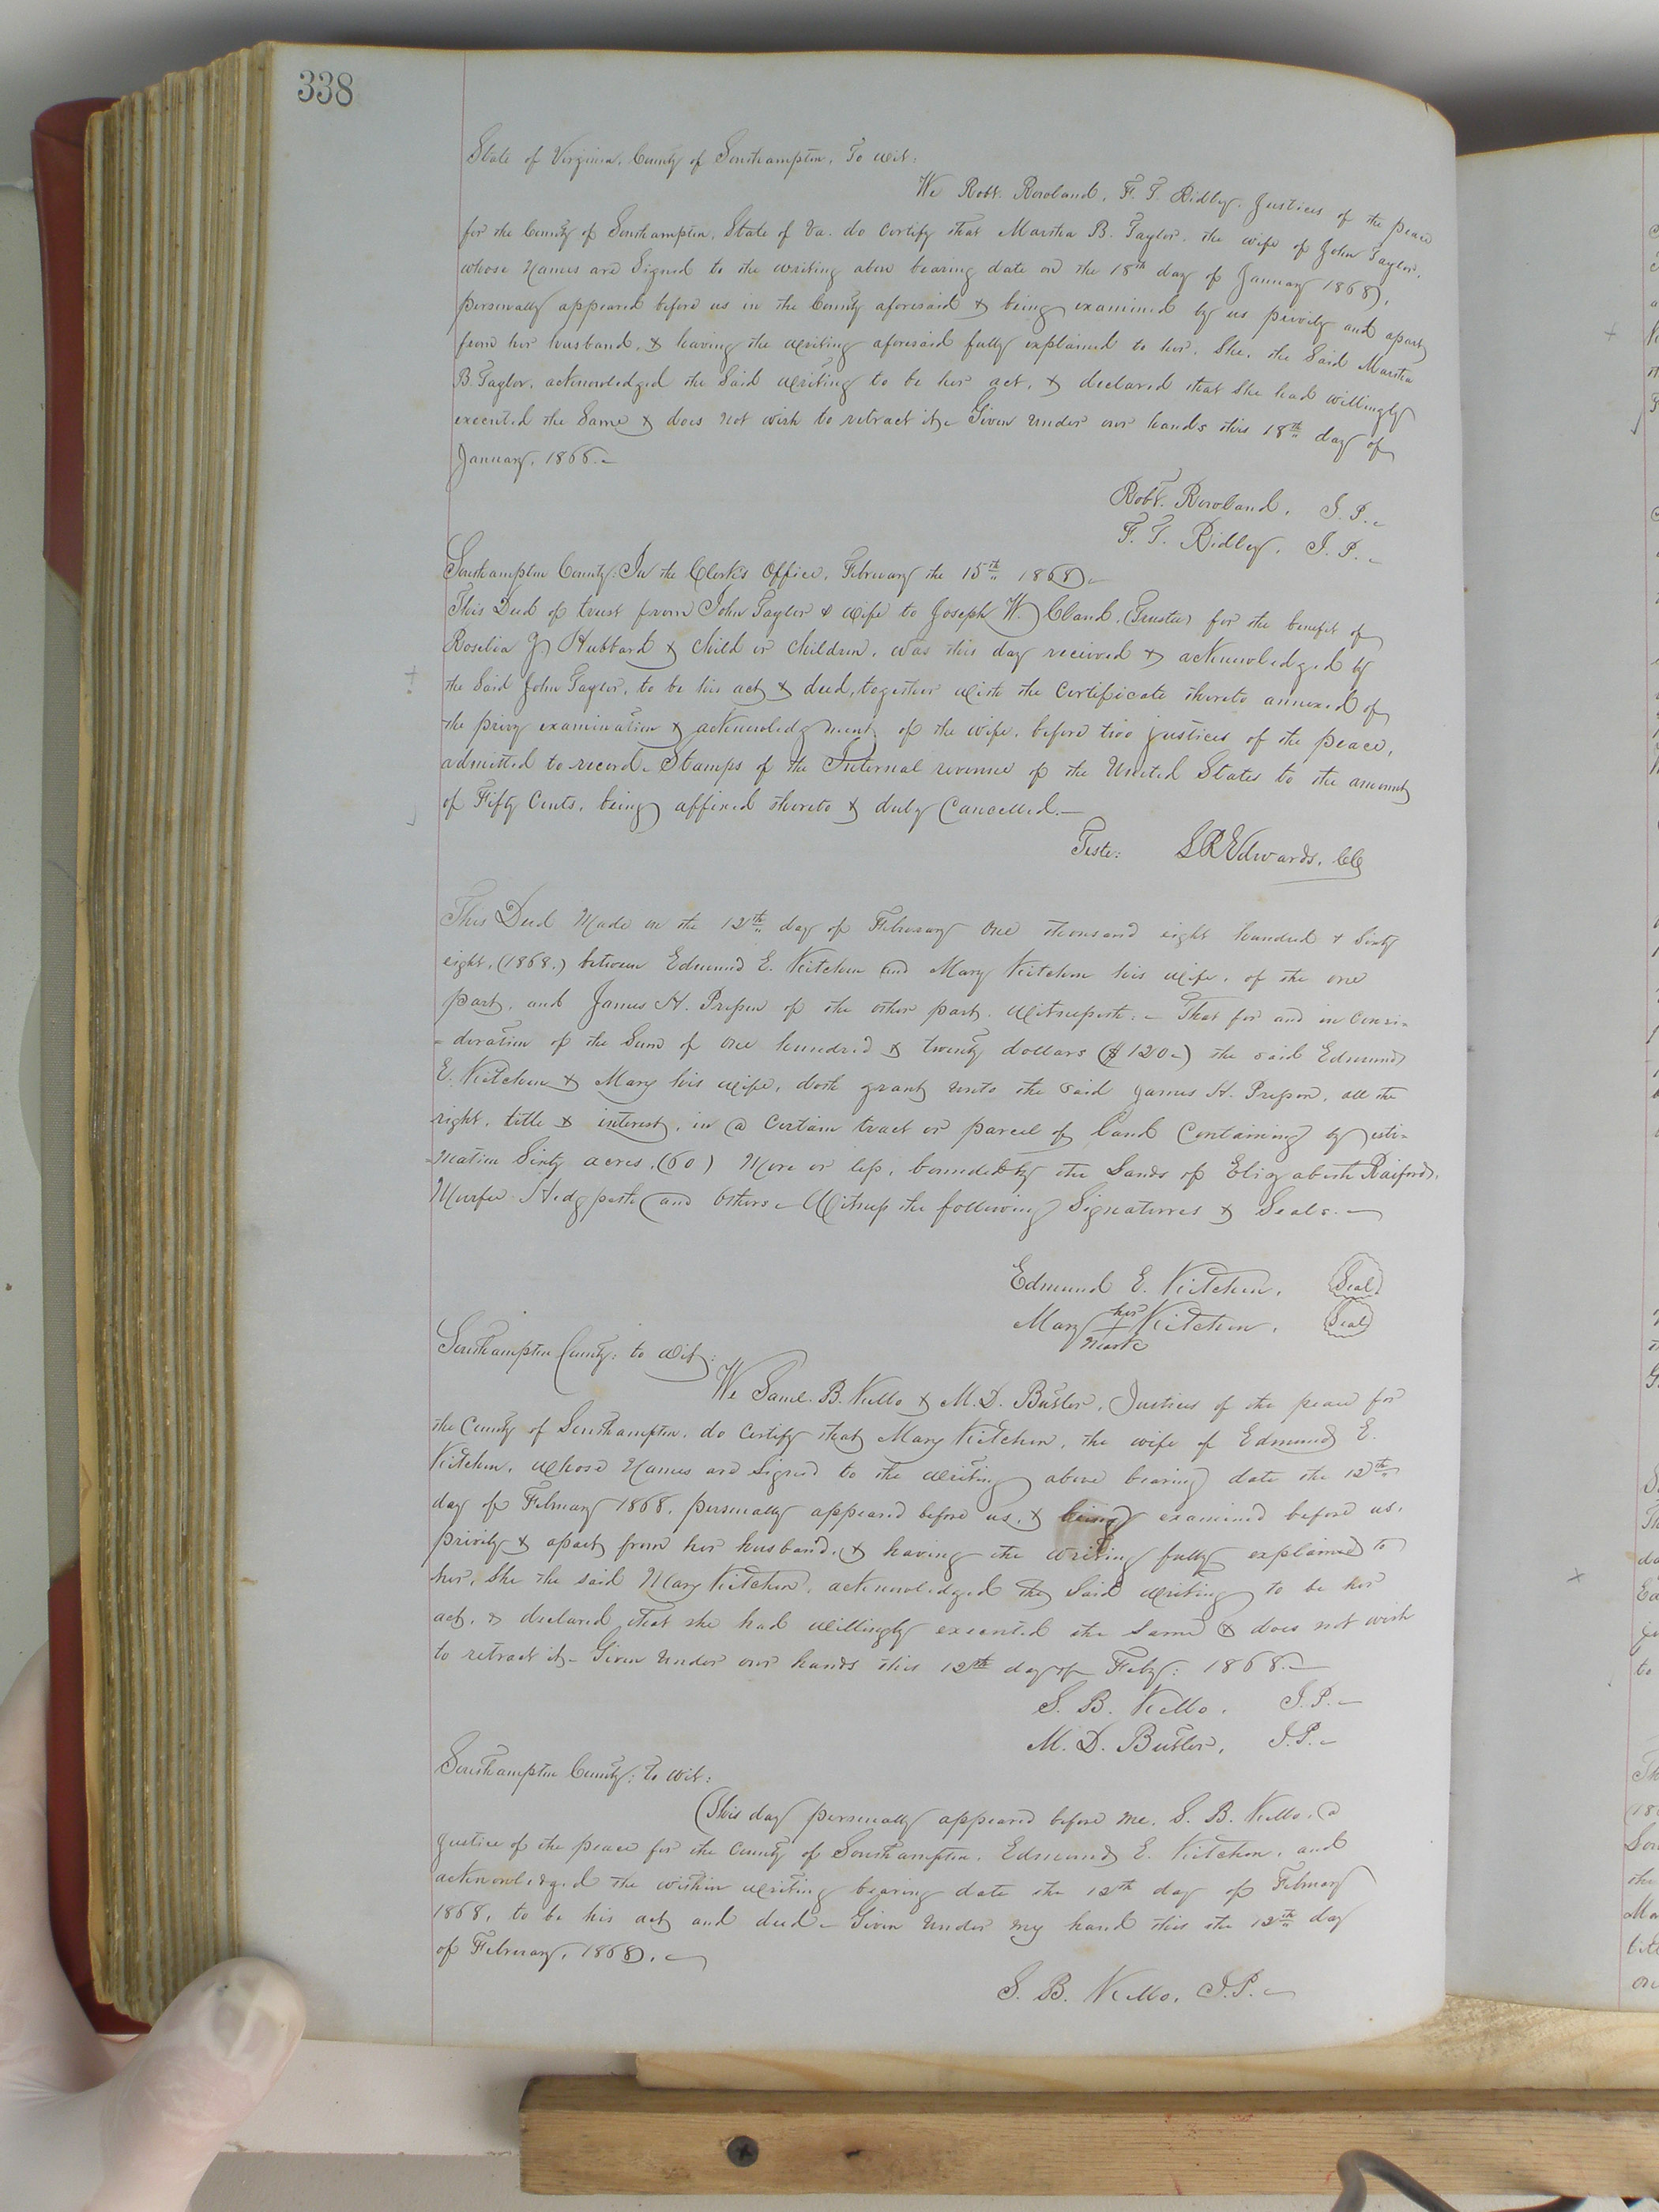 338
State of Virginia, County of Southampton, To wit:
We Robt. Rowland, F. T. Ridley, Justices of the peace
for the County of Southampton, State of Va. do certify that Martha B. Taylor, the wife of John Taylor,
whose Names are Signed to the writing above bearing date on the 18th day of January 1868,
personally appeared before us in the County aforesaid & being examined by us privily and apart
from her husband, & having the writing aforesaid fully explained to her, She, the Said Martha
B. Taylor, acknowledged the Said writing to be her act, & declared that She had willingly
executed the Same & does not wish to retract it. Given under our hands this 18th day of
January, 1868.
Robt. Rowland, J. P.
F. T. Ridley, J. P.
Southampton County: In the Clerk's Office, February the 15th 1868
This Deed of trust from John Taylor & wife to Joseph W. Claud, (Trustee) for the benefit of
Hubbard & Child or Children, was this day received & acknowledged by
the Said John Taylor, to be his act & deed, together with the Certificate thereto annexed of
the privy examination & acknowledgment of the wife, before two justices of the peace,
admitted to record. Stamps of the Internal revenue of the United States to the amount
of Fifty Cents, being affixed thereto & duly Cancelled.
Teste: L R Edwards, CC
This Deed Made on the 12th day of February One thousand eight hundred & Sixty
eight, (1868.) between Edmund E. Kitchen and Mary Kitchen his wife, of the one
part, and James H. Presson of the other part. Witnesseth: That for and in Consi-
-deration of the Sum of One hundred & twenty dollars ($ 120) the said Edmund
E. Kitchen & Mary his wife, doth grant unto the said James H. Presson, all the
right, title & interest, in a Certain tract or parcel of land Containing by esti-
-mation Sixty acres, (60) More or less, bounded by the Lands of Elizabeth Raiford,
Murfee Hedgpeth and others. Witness the following Signatures & Seals.
Edmund E. Kitchen, Seal
Mary her Kitchen, Seal
mark
Southampton County: to wit:
We Saml. B. Kello & M. D. Butler, Justices of the peace for
the County of Southampton, do Certify that Mary Kitchen, the wife of Edmund E.
Kitchen, whose Names are Signed to the writing above bearing date the 12th
day of February 1868, personally appeared before us, & being examined before us,
privily & apart from her husband, & having the writing fully explained to
her, She the said Mary Kitchen, acknowledged the Said writing to be her
act, & declared that she had willingly executed the Same & does not wish
to retract it. Given Under our hands this 12th day of Feby: 1868.
S. B. Kello, J. P.
M. D. Butler, J. P.
Southampton County: to wit:
This day personally appeared before me, S. B. Kello, a
justice of the peace for the County of Southampton, Edmund E. Kitchen, and
acknowledged the within writing bearing date the 12th day of February
1868, to be his act and deed. Given Under my hand this the 12th day
of February, 1868.
S. B. Kello, J. P.